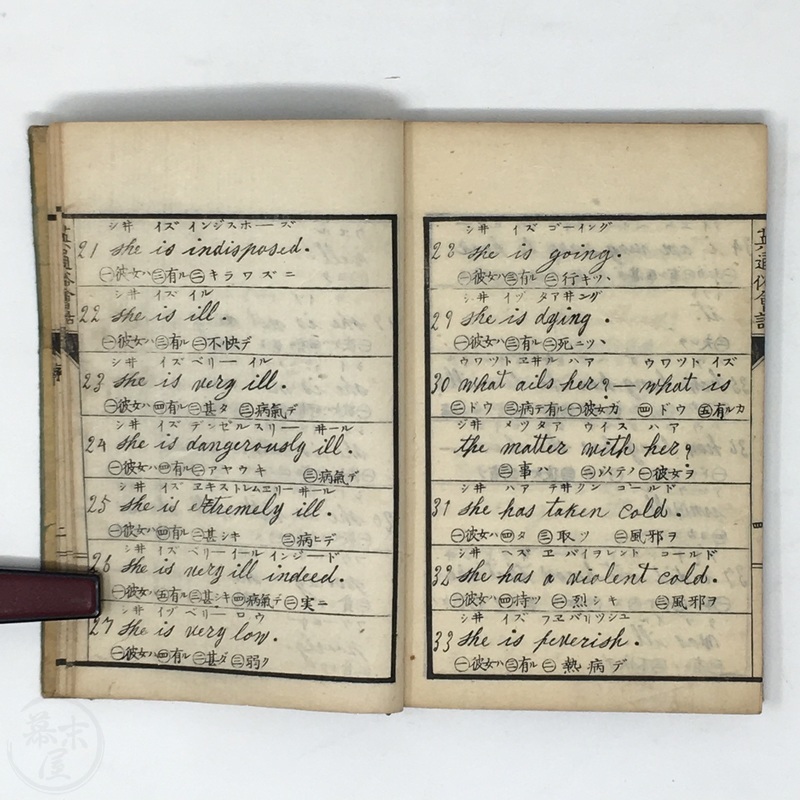 シ井 イズ インジスホーズ
21 she is indisposed.
㊀彼女ハ㊂有ル㊁キラワズニ
シ井 イズ イル
22 she is ill.
㊀彼女ハ㊂有ル㊁不快デ
シ井 イズ ベリー イル
23 she is very ill.
㊀彼女ハ㊃有ル㊁甚タ ㊂病氣デ
シ井 イズ デンゼルスリー 井ール
24 she is dangerously ill.
㊀彼女ハ㊃有ル㊁アヤウキ ㊂病氣デ
シ井 イズ ヱキストレムヱリー 井ール
25 she is extremely ill.
㊀彼女ハ㊃有ル㊁甚シキ ㊂病ヒデ
シ井 イズ ベリーイール インジード
26 she is very ill indeed.
㊀彼女ハ㊄有ル㊂甚シキ㊃病氣デ㊁実ニ
シ井 イヅ ベリー ロウ
27 she is very low.
㊀彼女ハ㊃有ル㊁甚ダ㊂弱ク
英通俗會話
序
二
シ井 イズ ゴーイング
28 she is going.
㊀彼女ハ㊂有ル㊁行キツヽ
シ井 イヅ タア井ング
29 she is dying.
㊀彼女ハ㊂有ル㊁死ニツヽ
ウワツトヱ井ル ハア ウワツト イズ
30 what ails her? — what is
㊁ドウ ㊂病テ有ル㊀彼女ガ ㊃ドウ ㊄有ルカ
ジ井 メツタア ウイス ハア
the matter with her?
㊂事ハ ㊁以テノ㊀彼女ヲ
シ井 ハア テ井クン コールド
31 she has taken cold.
㊀彼女ハ㊃タ ㊂取ツ ㊁風邪ヲ
シ井 ヘズ ヱ バイヲレント コールド
32 she has a violent cold.
㊀彼女ハ㊃持ツ ㊁烈シキ ㊂風邪ヲ
シ井 イズ フヱバリツシユ
33 she is feverish.
㊀彼女ハ㊂有ル㊁熱病デ
英通俗會話
四
幕末屋